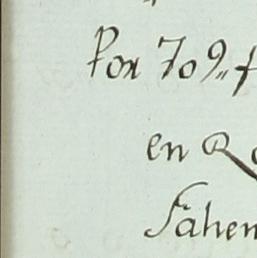 Por 709,,
en R
Fahen